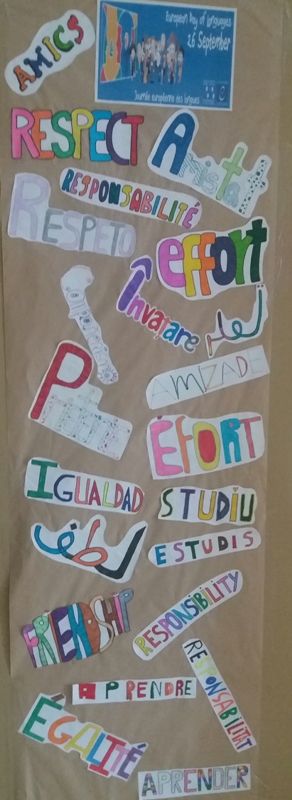 AMICS
European Day of Languages
26 September
Journée européenne des langues
RESPECT
Amistat
RESPONSABILITÉ
RESPETO
effort
învăţare
AMIZADE
ÉFORT
IGUALDAD
STUDIU
ESTUDIS
FRIENDSHIP
RESPONSIBILITY
RESPONSABILITAT
APRENDRE
ÉGALITÉ
APRENDER